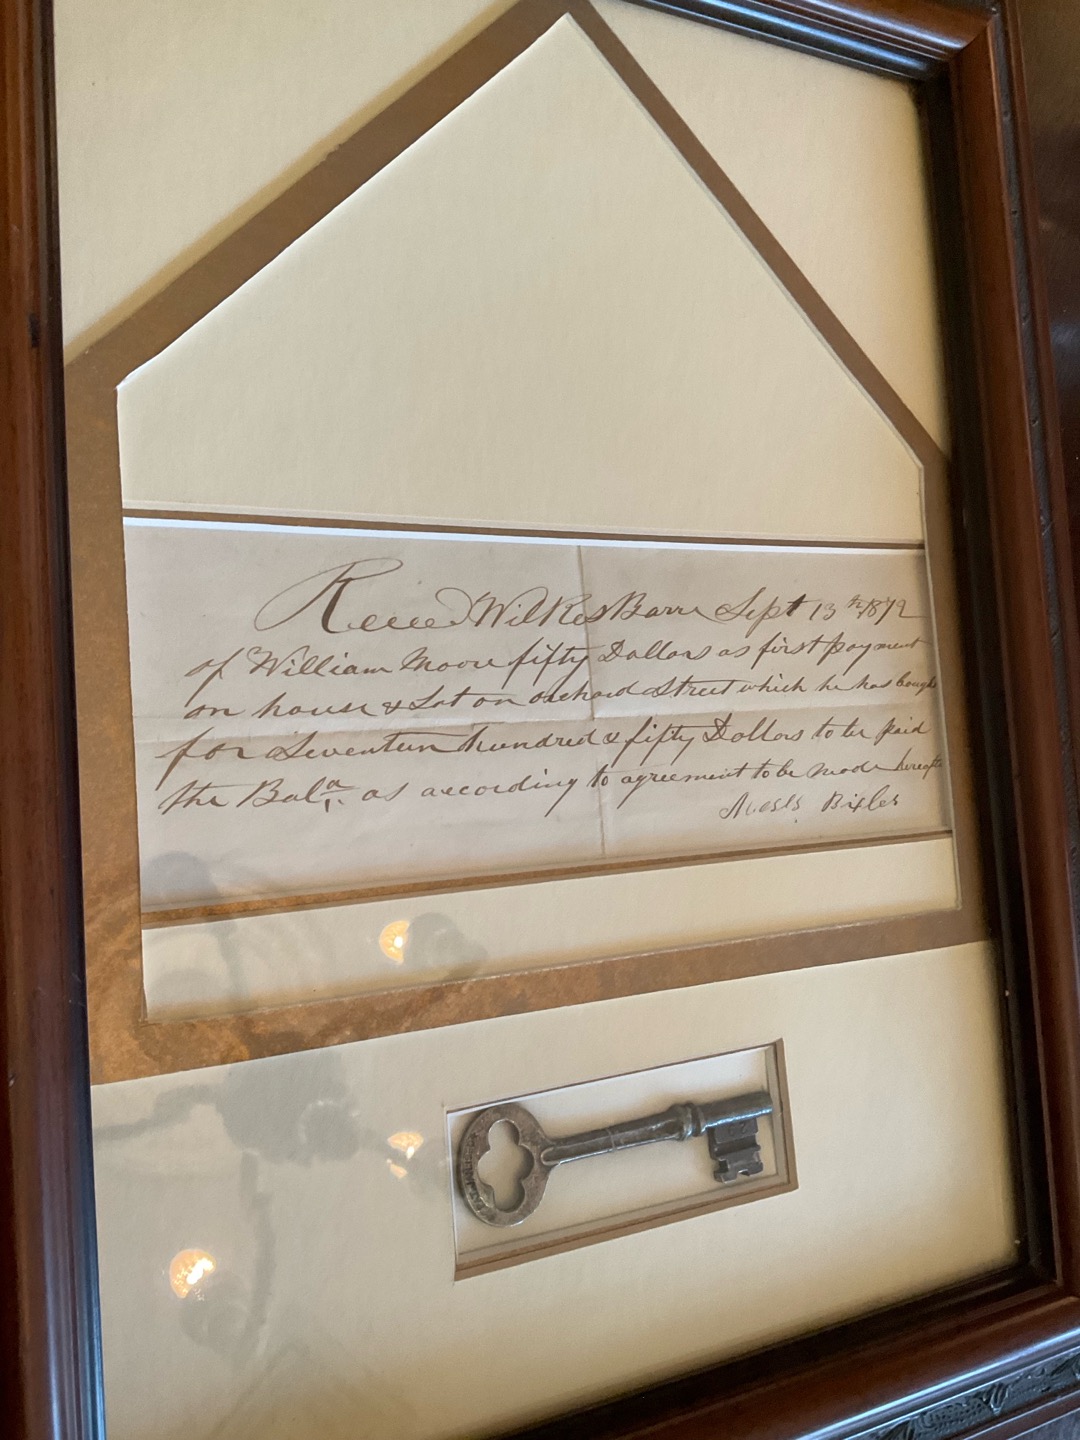 Recd Wilkes Barre Sept 13th 1872
of William Moore fifty Dollars as first payment
on house & Lot on orchard Street which he has bought
for Seventeen hundred & fifty Dollars to be paid
the Bala as according to agreement to be made hereafter
Moses Bixler